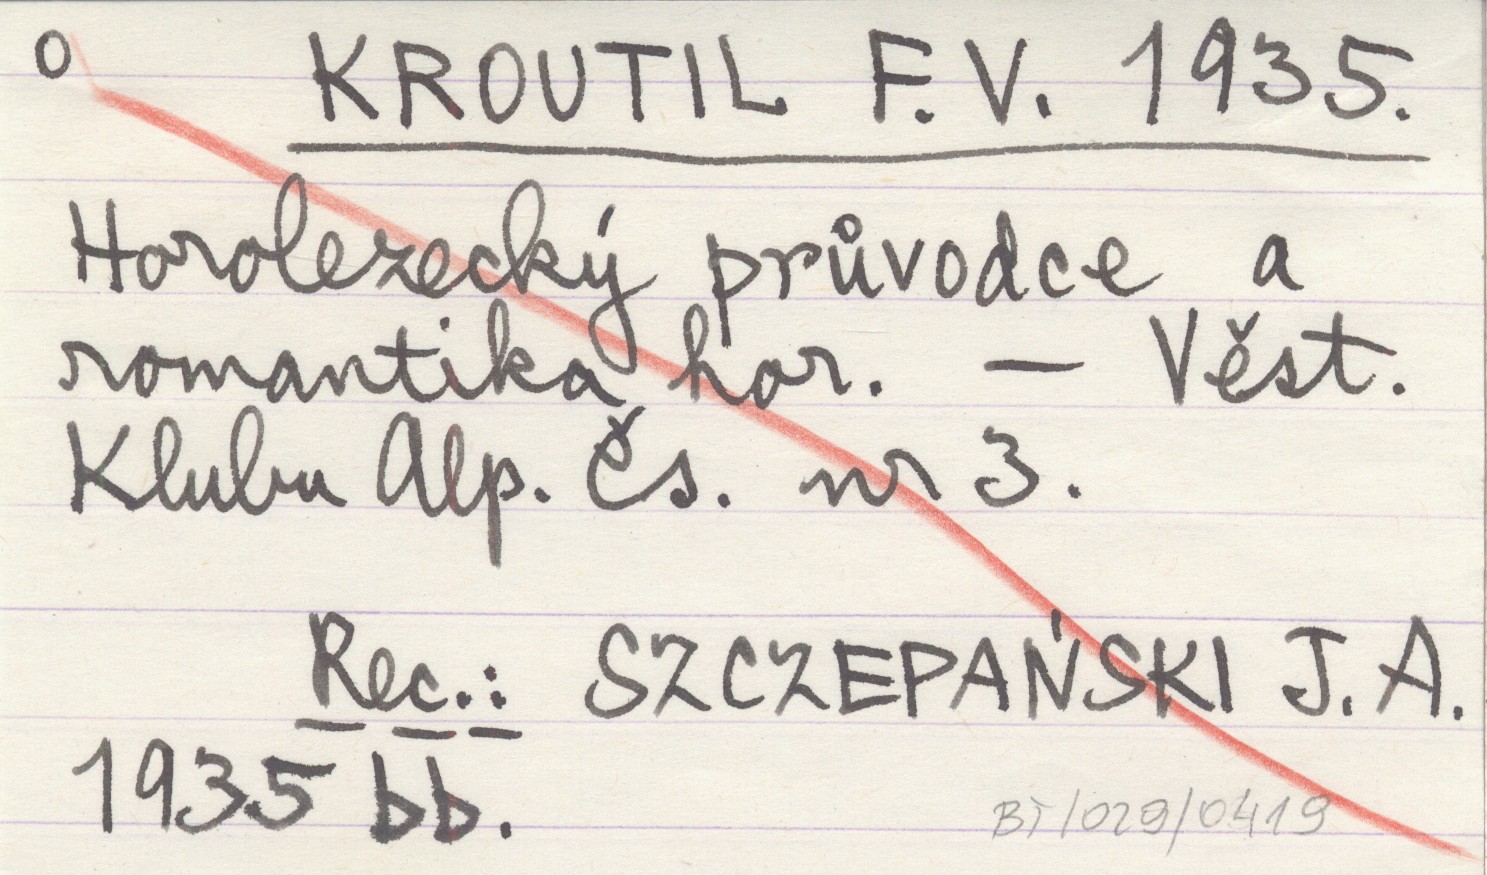 o KROUTIL F.V. 1935.
Horolezecký průvodce a
romantika hor. — Věst.
Klubu Alp. Čs. nr 3.
Rec.: SZCZEPAŃSKI J.A.
1935 bb.
BT/029/0419